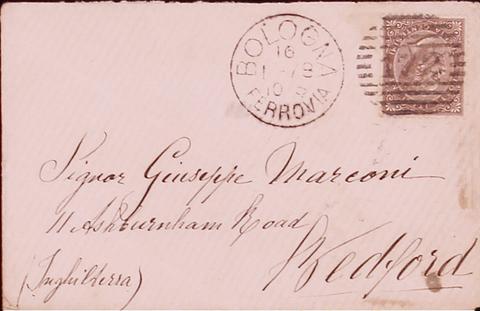 BOLOGNA
16
FERROVIA
Signor Giuseppe Marconi
11 Ashburnham Road
Bedford
(Inghilterra)